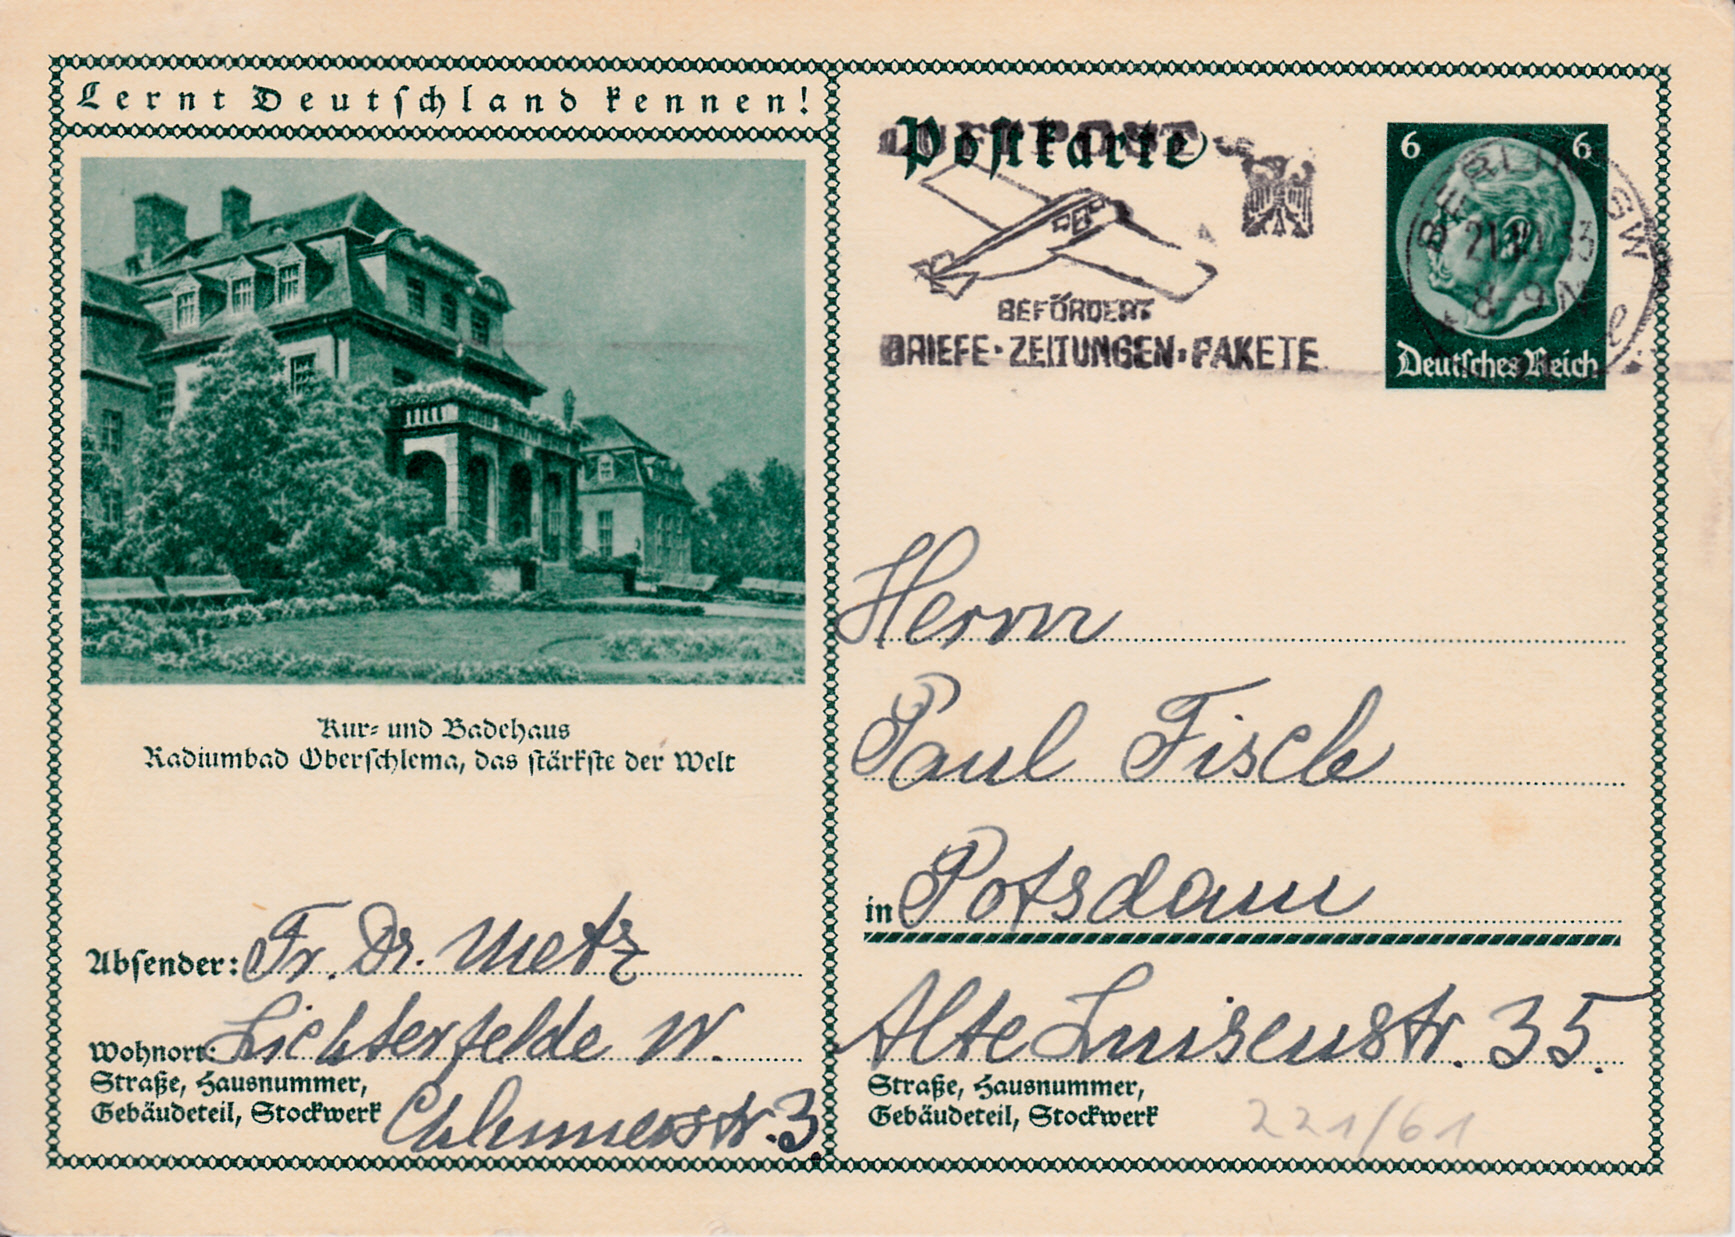 Lernt Deutschland kennen!
Kur- und Badehaus
Radiumbad Oberschlema, das stärkste der Welt
Absender: Fr. Dr. Metz
Wohnort: Lichterfelde W.
Straße, Hausnummer,
Gebäudeteil, Stockwerk
3
Postkarte
LUFTPOST
BEFÖRDERT
BRIEFE·ZEITUNGEN·PAKETE
6 6
BERLIN SW
8-9N
Deutsches Reich
Herrn
Paul Fisch
in Potsdam
Alte Luisenstr. 35.
Straße, Hausnummer,
Gebäudeteil, Stockwerk
221/61